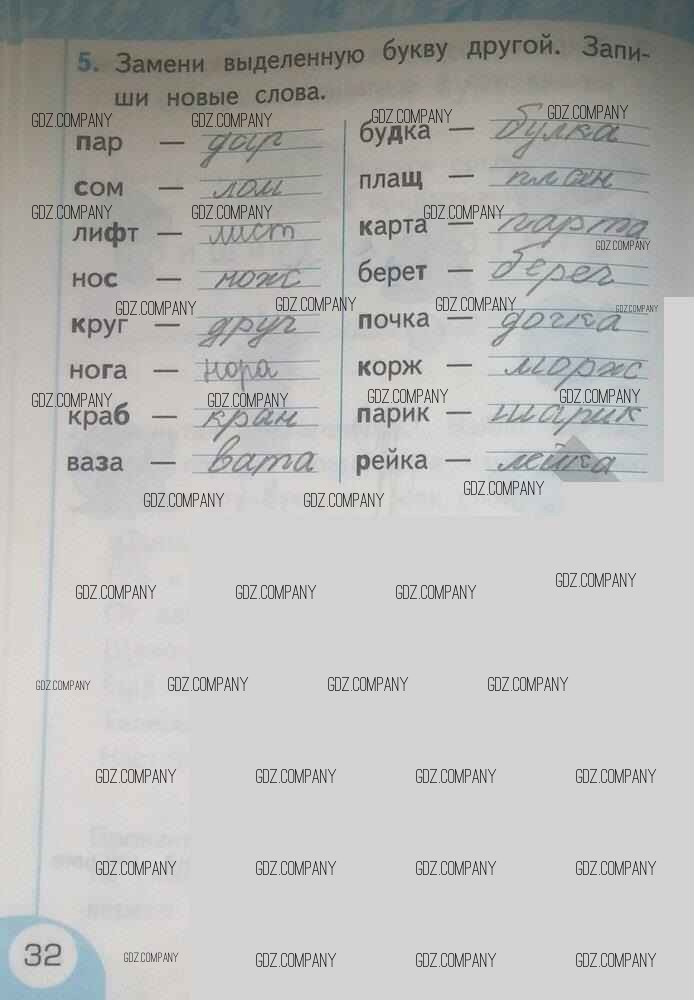 5. Замени выделенную букву другой. Запи-
ши новые слова.
GDZ.COMPANY GDZ.COMPANY GDZ.COMPANY GDZ.COMPANY
пар — дар
сом — лом
GDZ.COMPANY GDZ.COMPANY GDZ.COMPANY
лифт — лист
нос — нож
GDZ.COMPANY GDZ.COMPANY
круг — друг
нога — нора
GDZ.COMPANY GDZ.COMPANY
краб — кран
ваза — вата
будка — булка
плащ — план
карта — парта
GDZ.COMPANY
берет — берег
GDZ.COMPANY GDZ.COMPANY
почка — дочка
корж — морж
GDZ.COMPANY GDZ.COMPANY
парик — шарик
рейка — лейка
GDZ.COMPANY GDZ.COMPANY GDZ.COMPANY
GDZ.COMPANY GDZ.COMPANY GDZ.COMPANY GDZ.COMPANY
GDZ.COMPANY GDZ.COMPANY GDZ.COMPANY GDZ.COMPANY
GDZ.COMPANY GDZ.COMPANY GDZ.COMPANY GDZ.COMPANY
GDZ.COMPANY GDZ.COMPANY GDZ.COMPANY GDZ.COMPANY
32 GDZ.COMPANY GDZ.COMPANY GDZ.COMPANY GDZ.COMPANY